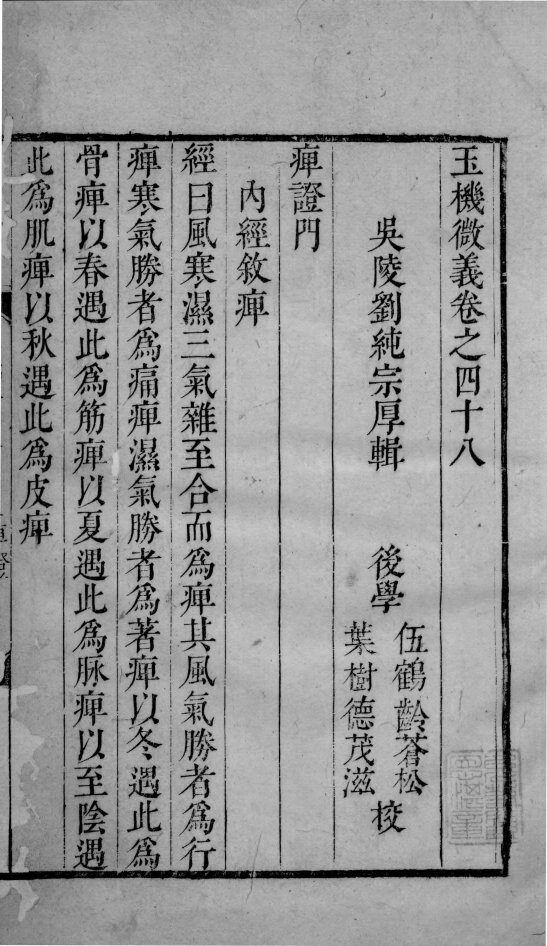 玉機微義卷之四十八
吳陵劉純宗厚輯 後學 伍鶴齡蒼松 葉樹德茂滋 校
痺證門
內經敘痺
經曰風寒濕三氣雜至合而爲痺其風氣勝者爲行
痺寒氣勝者爲痛痺濕氣勝者爲著痺以冬遇此爲
骨痺以春遇此爲筋痺以夏遇此爲脉痺以至陰遇
此爲肌痺以秋遇此爲皮痺